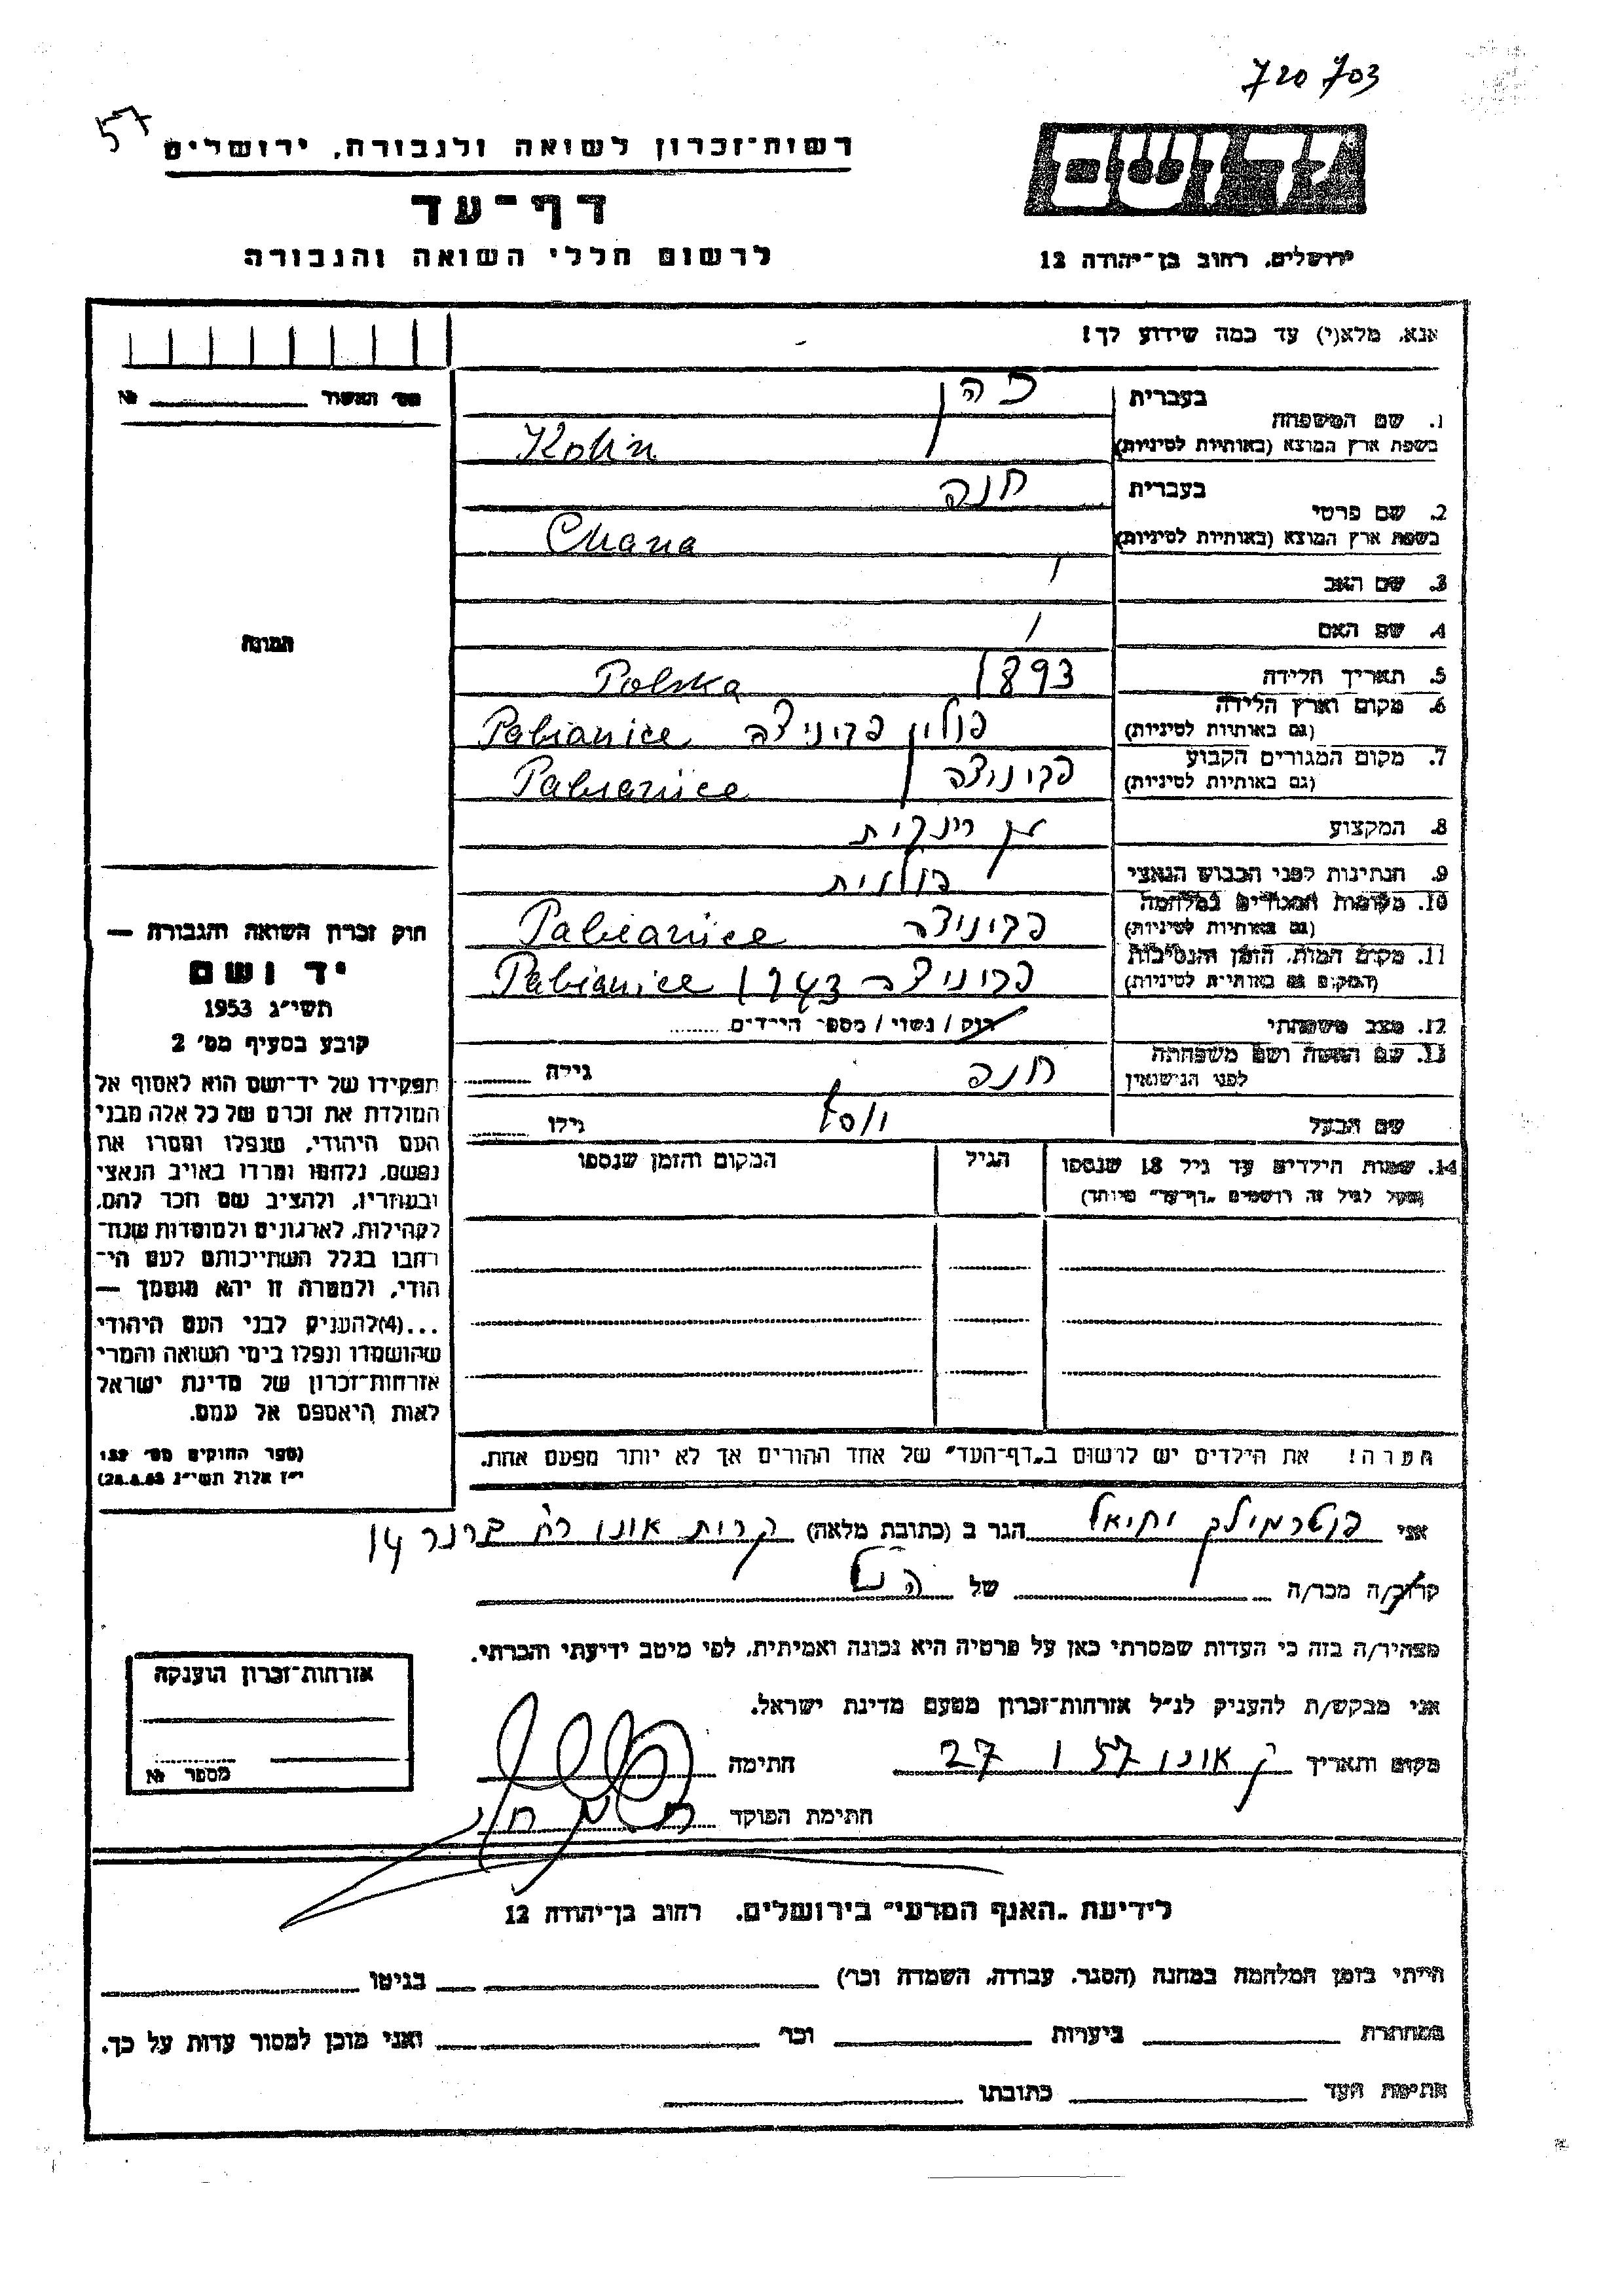 720 703
57
רשות־זכרון לשואה ולגבורה, ירושלים
דף־עד
לרשום חללי השואה והגבורה
ירושלים, רחוב בן־יהודה 12
אנא, מלא(י) עד כמה שידוע לך!
מס' האשור № 
1. שם המשפחה בעברית כהן
בשפת ארץ המוצא (באותיות לטיניות) Kohn
2. שם פרטי בעברית חנה
בשפת ארץ המוצא (באותיות לטיניות) Chana
3. שם האב /
4. שם האם /
5. תאריך הלידה 1893 Polska
6. מקום וארץ הלידה (גם באותיות לטיניות) פולין פביניצה Pabianice
7. מקום המגורים הקבוע (גם באותיות לטיניות) פביניצה Pabianice
8. המקצוע
9. הנתינות לפני הכבוש הנאצי פולנית
10. מקומות המגורים במלחמה (גם באותיות לטיניות) פביניצה Pabianice
11. מקום המות, הזמן והנסיבות (המקום גם באותיות לטיניות) פביניצה 1943 Pabianice
12. מצב משפחתי רווק / נשוי / מספר הילדים
13. שם האשה ושם משפחתה לפני הנישואין חנה גילה
שם הבעל גילו
14. שמות הילדים עד גיל 18 שנספו (מעל לגיל זה רושמים „דף־עד" מיוחד) הגיל המקום והזמן שנספו
הערה! את הילדים יש לרשום ב„דף־העד" של אחד ההורים אך לא יותר מפעם אחת.
תמונה
חוק זכרון השואה והגבורה —
יד ושם
תשי"ג 1953
קובע בסעיף מס' 2
תפקידו של יד־ושם הוא לאסוף אל
המולדת את זכרם של כל אלה מבני
העם היהודי, שנפלו ומסרו את
נפשם, נלחמו ומרדו באויב הנאצי
ובעוזריו, ולהציב שם וזכר להם,
לקהילות, לארגונים ולמוסדות שנח־
רבו בגלל השתייכותם לעם הי־
הודי, ולמטרה זו יהא מוסמך —
...(4)להעניק לבני העם היהודי
שהושמדו ונפלו בימי השואה והמרי
אזרחות־זכרון של מדינת ישראל
לאות היאספם אל עמם.
(ספר החוקים מס' 132
י"ז אלול תשי"ג 28.8.53)
אני פוטרמילך יחיאל הגר ב (כתובת מלאה) קרית אונו רח' ברנר 14
קרוב/ה מכר/ה של
מצהיר/ה בזה כי העדות שמסרתי כאן על פרטיה היא נכונה ואמיתית, לפי מיטב ידיעתי והכרתי.
אני מבקש/ת להעניק לנ"ל אזרחות־זכרון מטעם מדינת ישראל.
מקום ותאריך ק אונו 57 I 27 חתימה
חתימת הפוקד
אזרחות־זכרון הוענקה
מספר №
לידיעת „האגף המדעי" בירושלים, רחוב בן־יהודה 12
הייתי בזמן המלחמה במחנה (הסגר, עבודה, השמדה וכו') בגיטו
במחתרת ביערות וכו' ואני מוכן למסור עדות על כך.
חתימת העד כתובתו